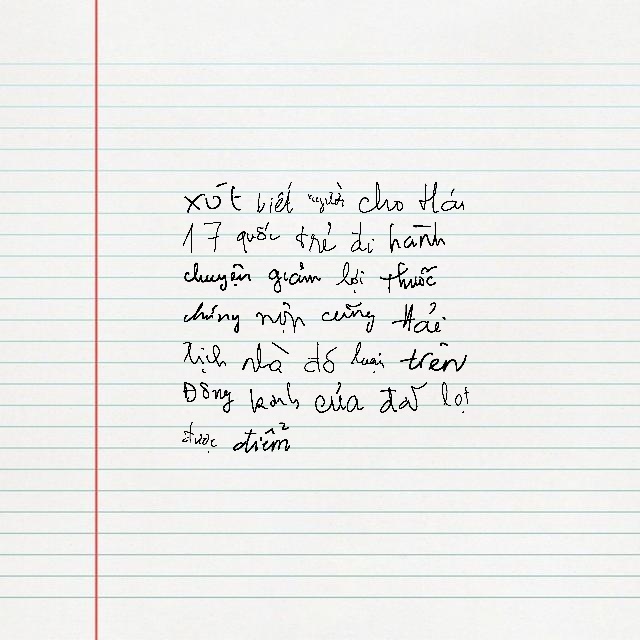 xút biết người cho Hải
17 quốc trẻ đi hành
chuyện giảm lợi thuốc
chúng nộp cũng Hải
lịch nhà đó loại trên
Đông kinh của đã lọt
được điểm